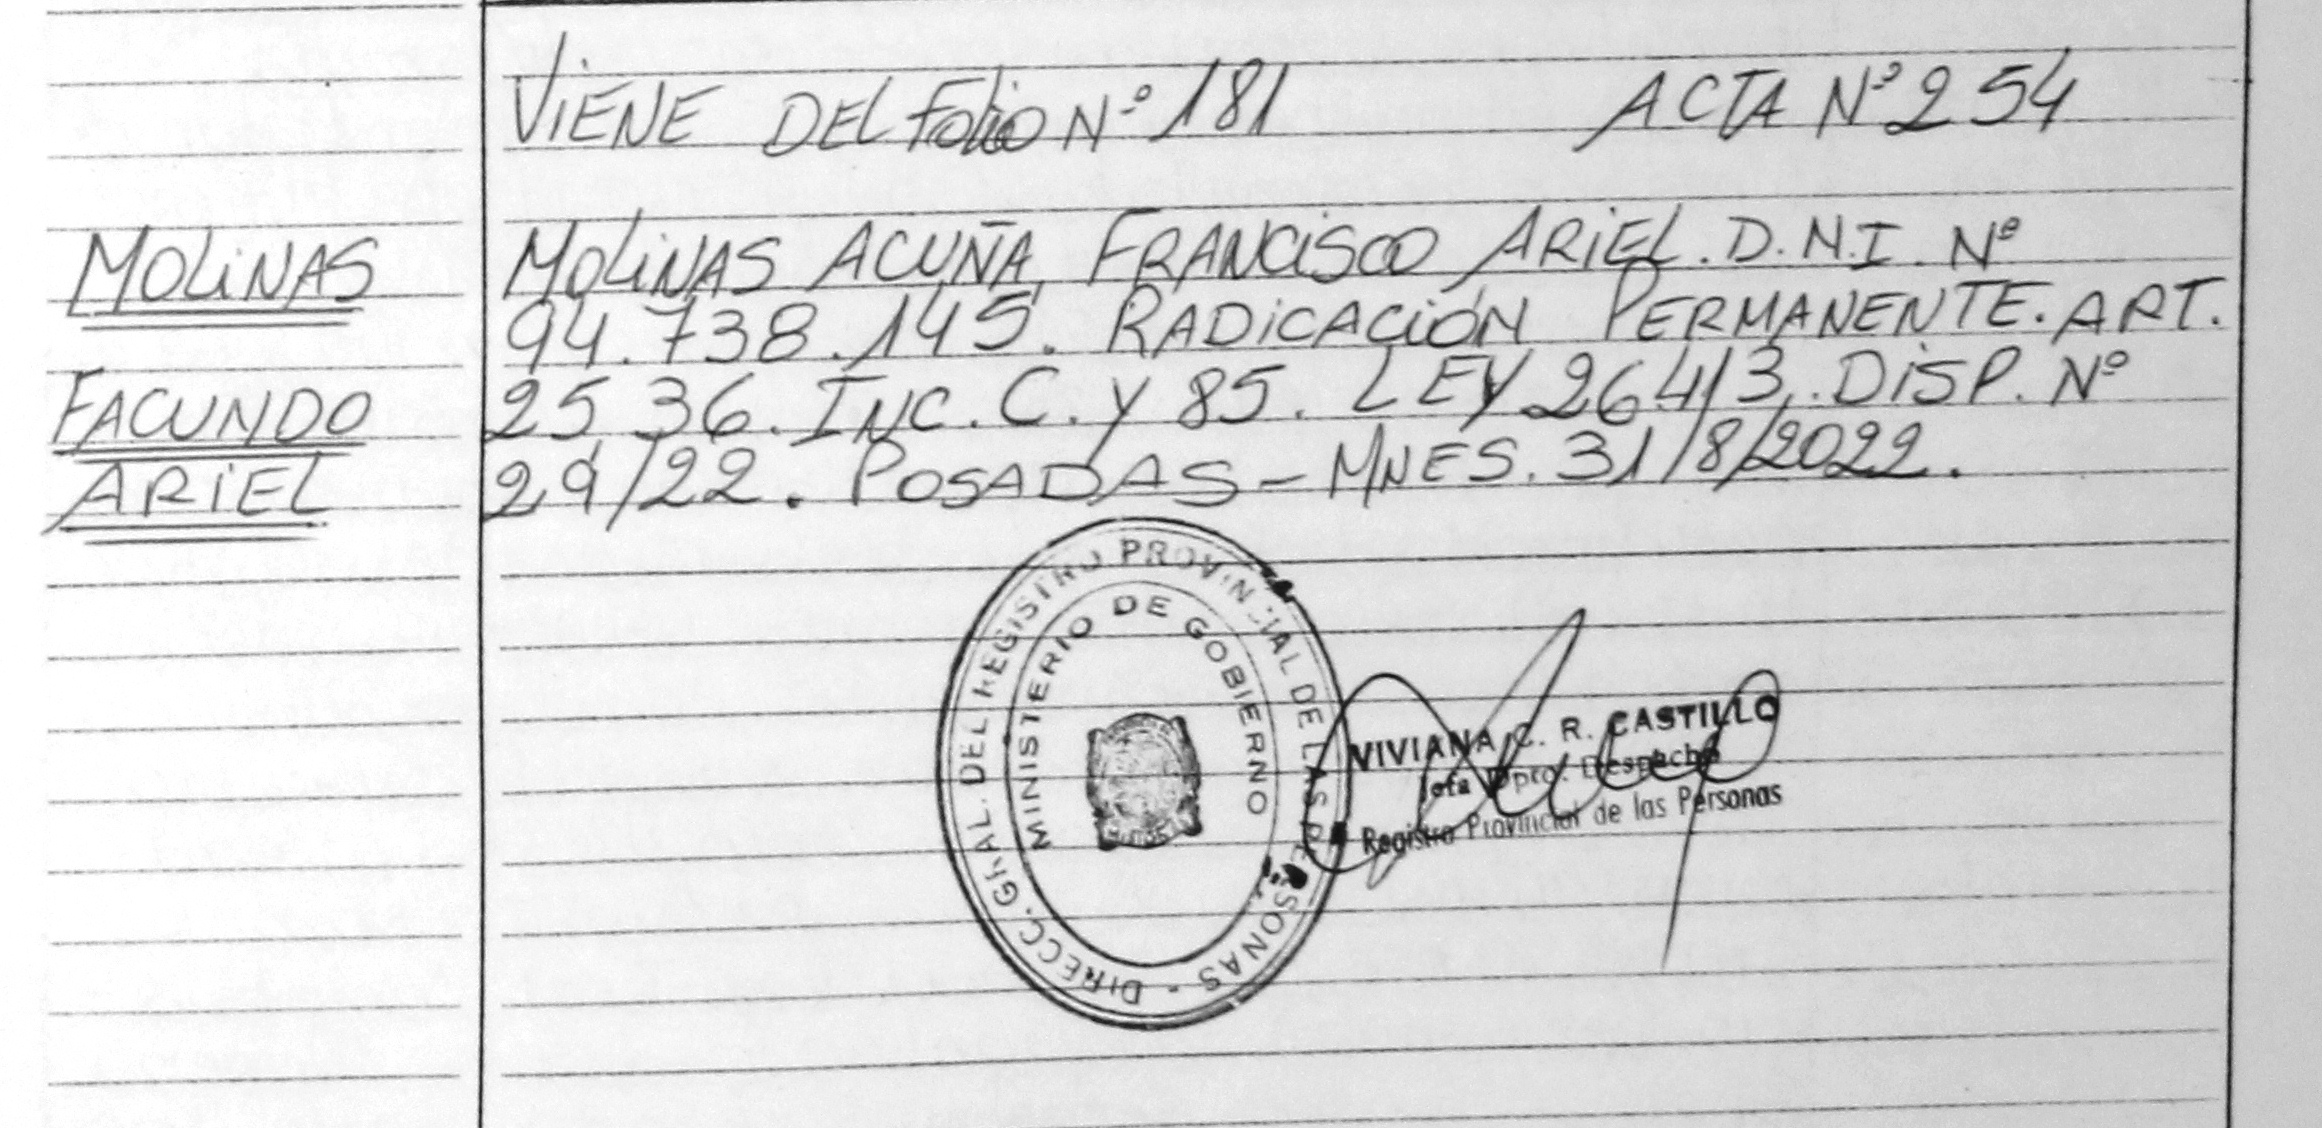 VIENE DEL Folio Nº 181 ACTA Nº 254
MOLINAS
FACUNDO
ARIEL
MOLINAS ACUÑA, FRANCISCO ARIEL. D.N.I. Nº
94.738.145. RADICACIÓN PERMANENTE. ART.
25 36. INC. C. y 85. LEY 26413. DISP. Nº
29/22. POSADAS - MNES. 31/8/2022.
DIRECC. GRAL. DEL REGISTRO PROVINCIAL DE LAS PERSONAS -
MINISTERIO DE GOBIERNO
VIVIANA C. R. CASTILLO
Jefa Dpto. Despacho
Registro Provincial de las Personas